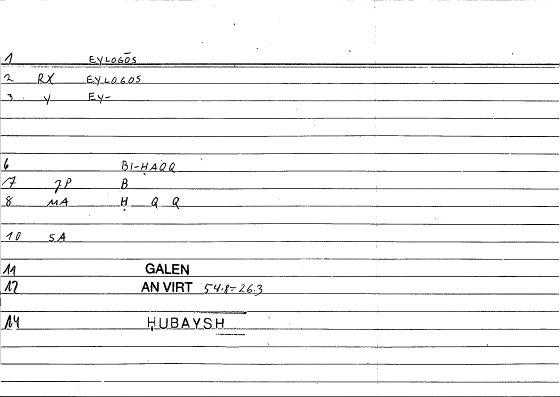 1 EYLOGŌS
2 RX EYLOGOS
3 y EY-
6 BI-ḤAQQ
7 JP B
8 MA Ḥ Q Q
10 SA
11 GALEN
12 AN VIRT 54.8=26.3
14 ḤUBAYSH